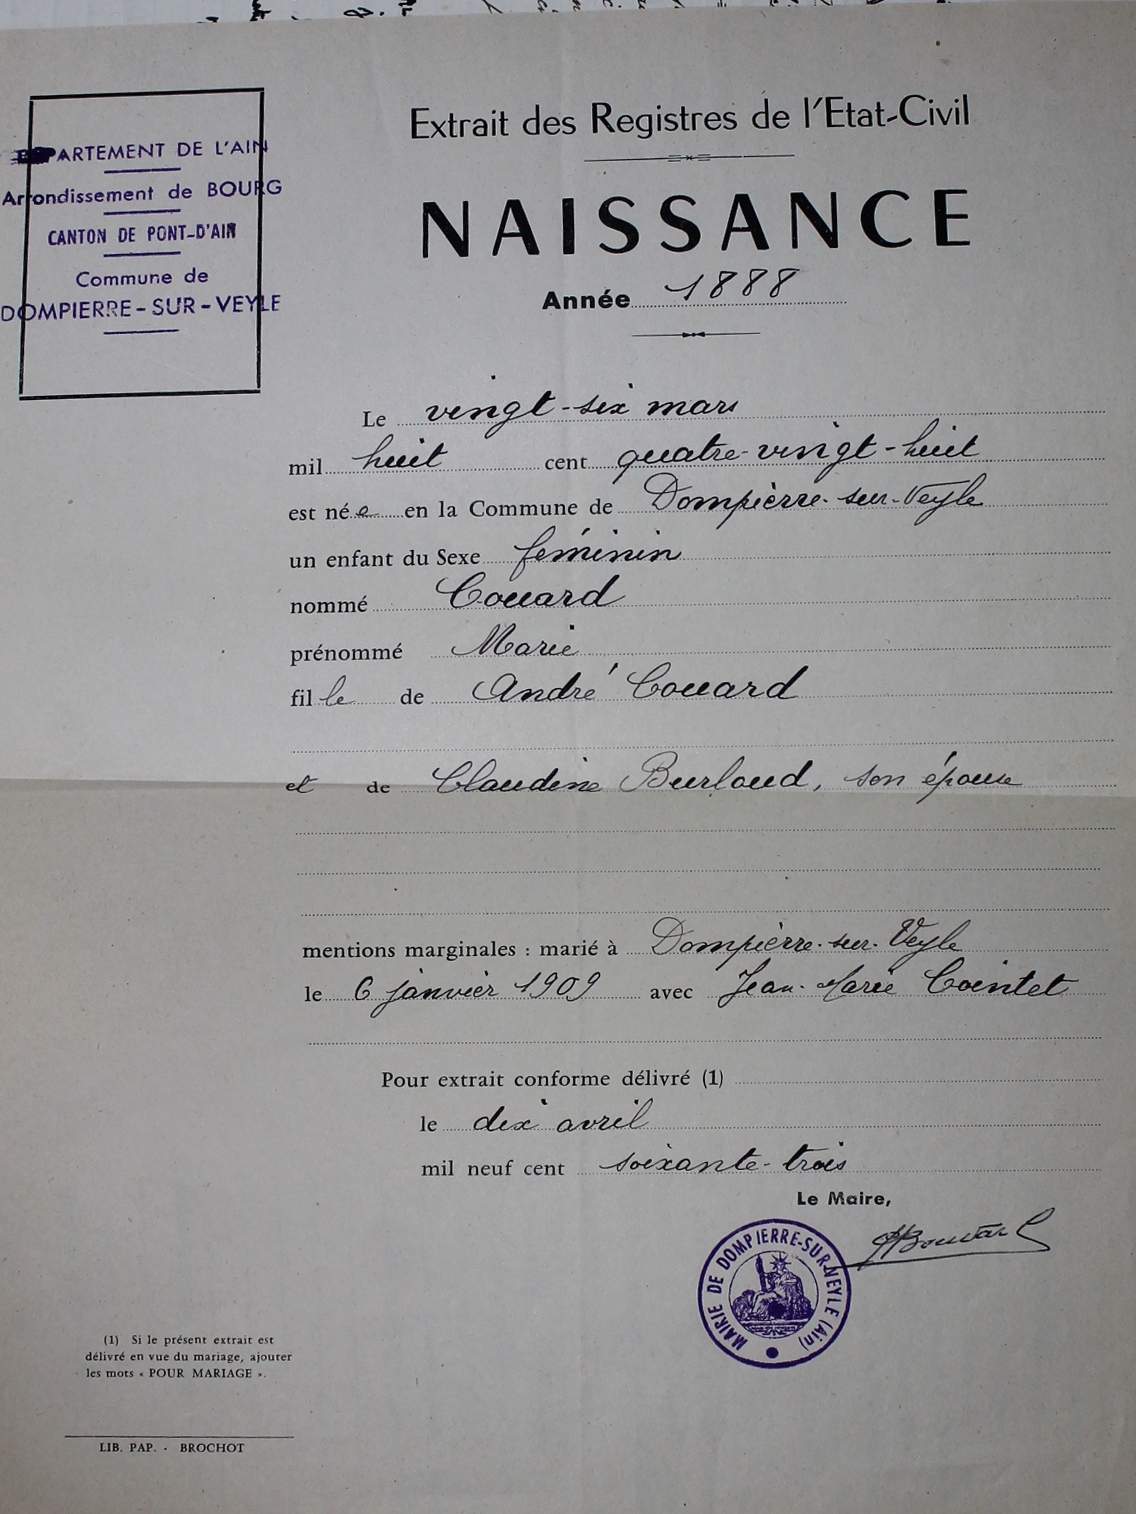 DEPARTEMENT DE L'AIN
Arrondissement de BOURG
CANTON DE PONT-D'AIN
Commune de
DOMPIERRE-SUR-VEYLE
Extrait des Registres de l'Etat-Civil
NAISSANCE
Année 1888
Le vingt-six mars
mil huit cent quatre-vingt-huit
est née en la Commune de Dompierre-sur-Veyle
un enfant du Sexe féminin
nommé Couard
prénommé Marie
fille de André Couard
et de Claudine Burloud, son épouse
mentions marginales : marié à Dompierre-sur-Veyle
le 6 janvier 1909 avec Jean-Marie Cointet
Pour extrait conforme délivré (1)
le dix avril
mil neuf cent soixante-trois
Le Maire,
MAIRIE DE DOMPIERRE-SUR-VEYLE (Ain)
(1) Si le présent extrait est
délivré en vue du mariage, ajouter
les mots « POUR MARIAGE ».
LIB. PAP. - BROCHOT